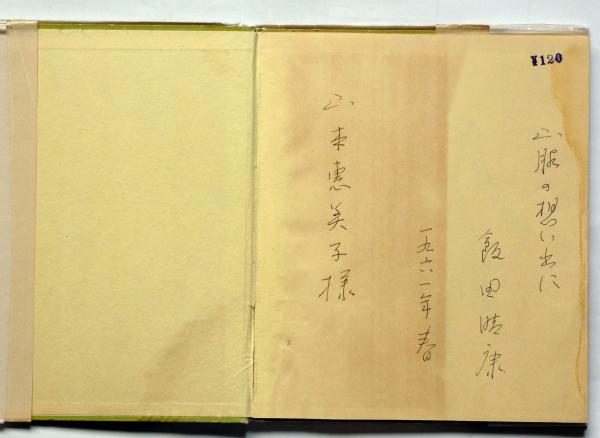 ¥120
山服の想い出に
飯田晴康
一九六一年春
山本恵美子様